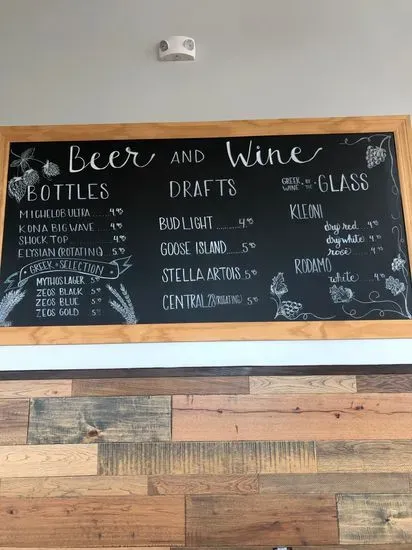 Beer AND Wine
BOTTLES
MICHELOB ULTRA ..... 4.95
KONA BIG WAVE ..... 4.95
SHOCK TOP ..... 4.95
ELYSIAN (ROTATING) . 5.95
GREEK SELECTION
MYTHOS LAGER . 5
ZEOS BLACK . 5
ZEOS BLUE . 5
ZEOS GOLD . 5
DRAFTS
BUD LIGHT ..... 4.95
GOOSE ISLAND ..... 5
STELLA ARTOIS . 5
CENTRAL 28 (ROTATING) . 5
GREEK WINE BY THE GLASS
KLEONI
dry red . 4
dry white . 4
rosé . 4
RODAMO
white . 4